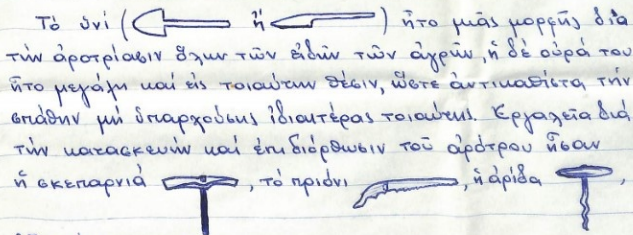 Τό ὑνί ( ἤ ) ἦτο μιᾶς μορφῆς διά
τήν ἀροτρίασιν ὅλων τῶν εἰδῶν τῶν ἀγρῶν, ἡ δέ οὐρά του
ἦτο μεγάλη καί εἰς τοιαύτην θέσιν, ὥστε ἀντικαθίστα τήν
σπάθην μή ὑπαρχούσης ἰδιαιτέρας τοιαύτης. Ἐργαλεῖα διά
τήν κατασκευήν καί ἐπιδιόρθωσιν τοῦ ἀρότρου ἦσαν
ἡ σκεπαρνιά , τό πριόνι , ἡ ἀρίδα ,